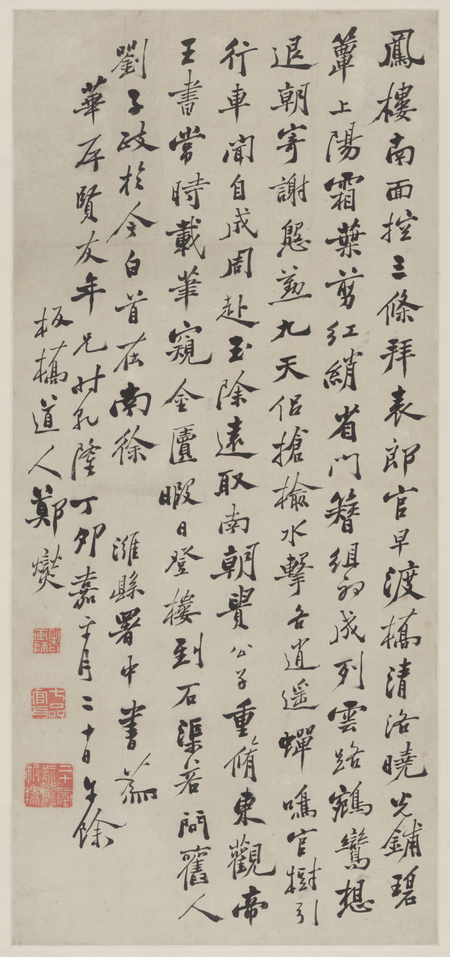 鳳樓南面控三條拜表郎官早渡橋清洛曉光鋪碧
簟上陽霜葉剪紅綃省門簪組初成列雲路鸞想
退朝寄謝慇懃九天侶搶榆水擊各逍遙蟬鳴官樹引
行車聞自成周赴玉除遠取南朝貴公子重脩東觀帝
王書常時載筆窺金匱暇日登樓到石渠若問舊人
劉子政於今白首在南徐 濰縣署中書為
華屏賢友年兄時乾隆丁卯嘉平月二十日午餘
板橋道人鄭燮
七品官耳
二十年前舊板橋